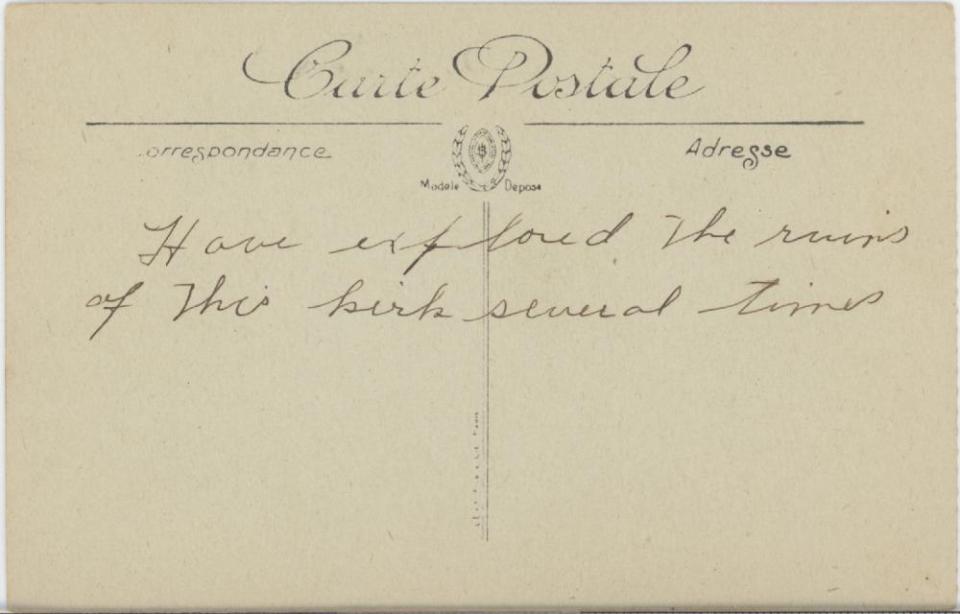 Carte Postale
Correspondance
Adresse
Modele Deposé
Have explored the ruins
of this kirk several times